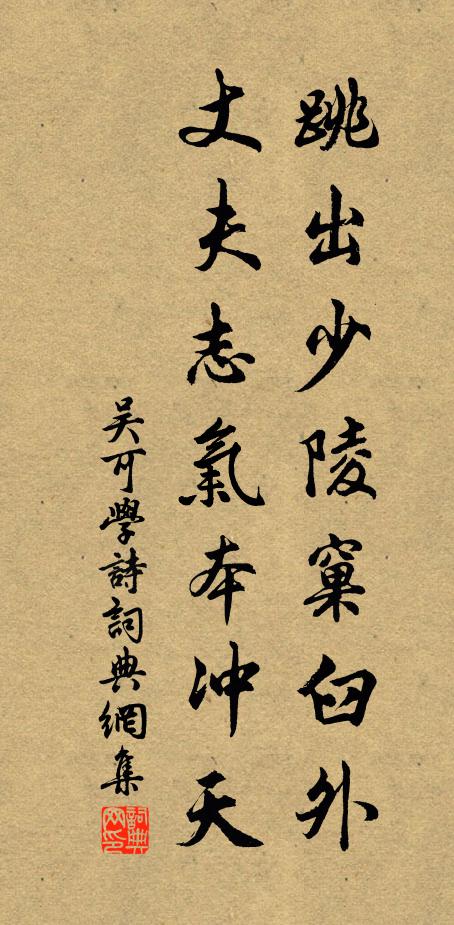 跳出少陵窠臼外
丈夫志氣本冲天
吴可學詩詞典網集
詞典网印